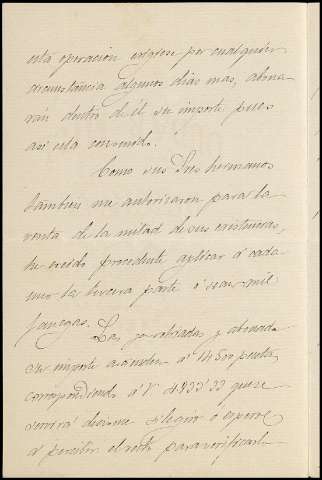 esta operacion exigiese por cualquier
circunstancia algunos dias mas, abona
rán dentro de él su importe pues
asi esta convenido.
Como sus Sres hermanos
tambien me autorizaron para la
venta de la mitad de sus existencias,
he creido procedente aplicar á cada
uno la tercera parte ó sean mil
fanegas. Las ya retiradas y abonado
su importe ascienden á 14500 pesetas
correspondiendo á V 4833'33 que se
servirá decirme si le giro ó espero
á percibir el resto para verificarlo